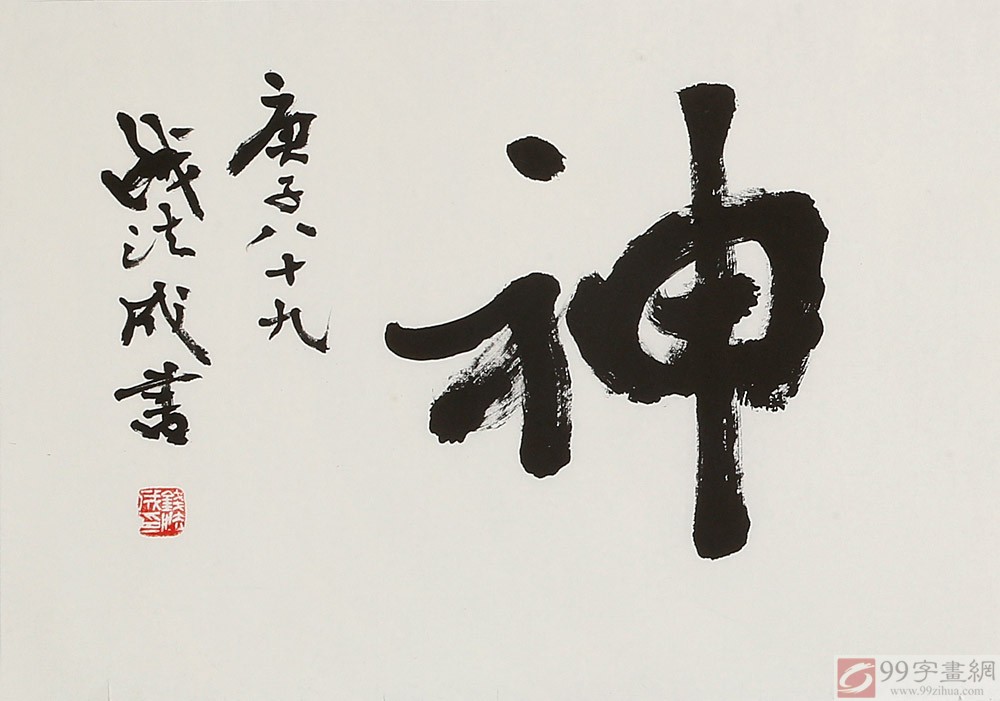 神
庚子八十九
錢法成書
錢法成印
99字畫網
www.99zihua.com